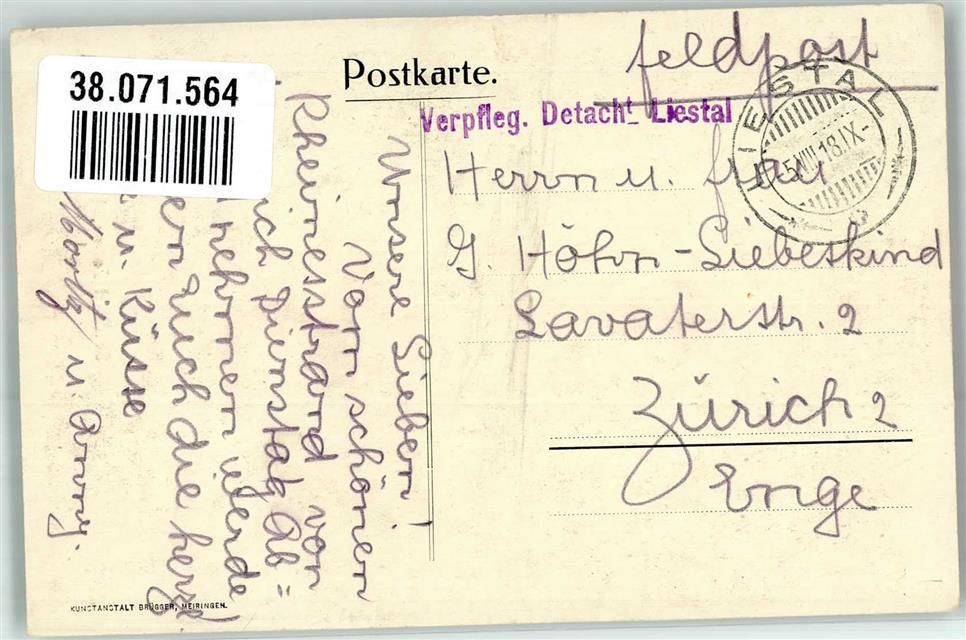 38.071.564
Postkarte.
feldpost
Verpfleg. Detacht. Liestal
LIESTAL
18.IX-
Herrn u. frau
G. Höhn-Liebeskind
Lavaterstr. 2
Zürich 2
Enge
Unsere Lieben!
Vom schönen
Rheinesstrand von
ich Dienstag Ab=
nehmen werde
Euch die herzl.
u. Küsse
Moritz u. Anny.
KUNSTANSTALT BRÜGGER, MEIRINGEN.